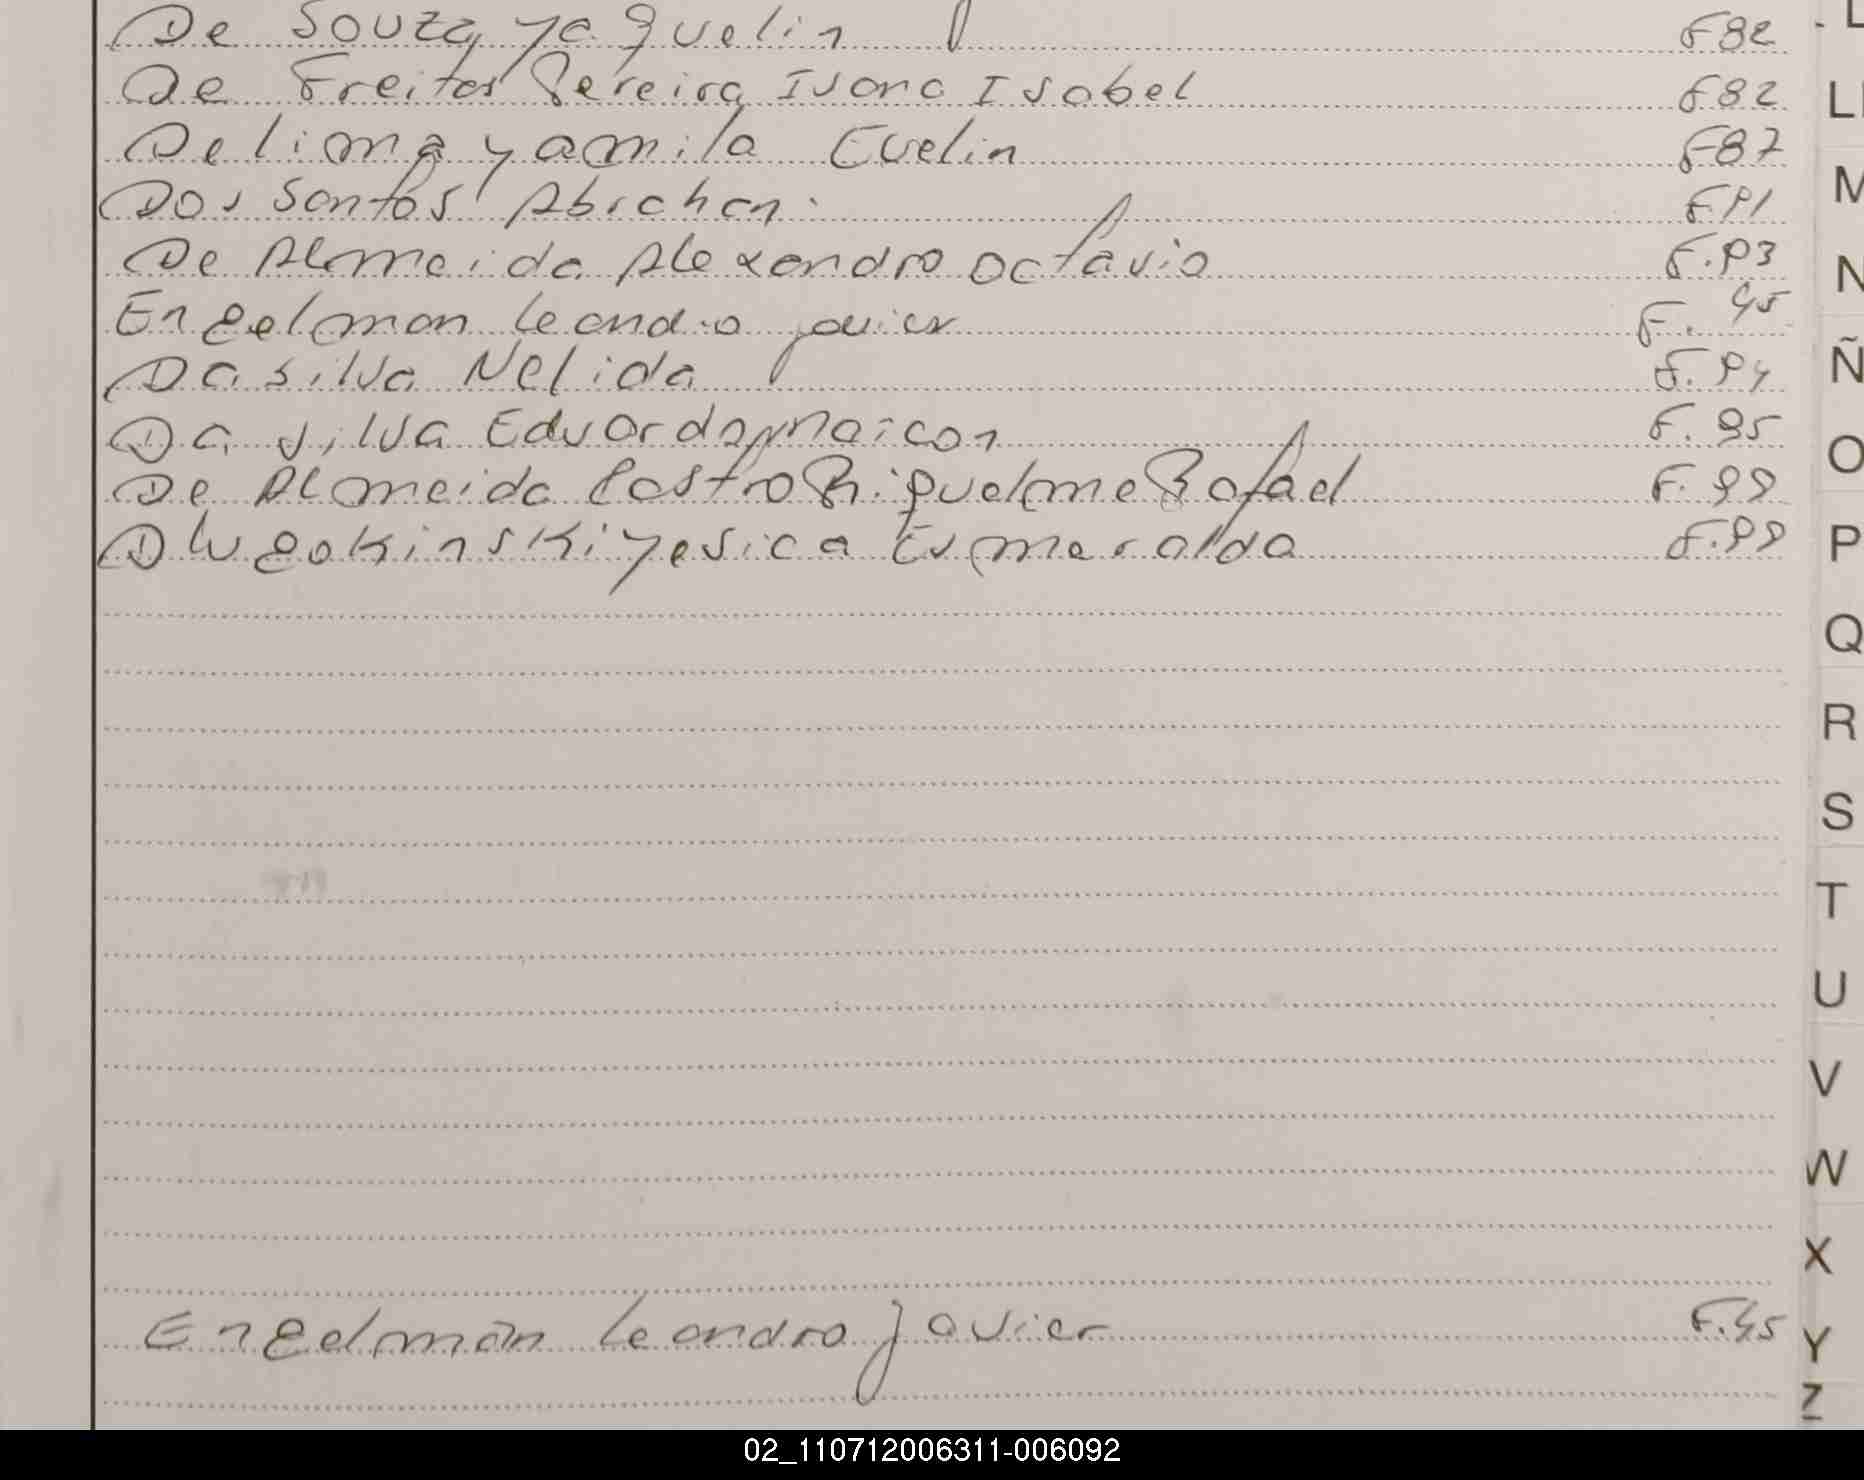 De Souza yaquelin F82
De Freitas Pereira Ivana Isabel F82
De lima yamila Evelin F87
Dos Santos Abrahan. F91
De Almeida Alexandro Octavio F.93
Engelman Leandro javier F. 45
Da silva Nelida F. 94
Da silva Eduardo Maicon F. 95
De Almeida Castro Riquelme Rafael F. 99
Dlugokinski yesica Esmeralda F.99
Engelman Leandro javier F.45
L
LL
M
N
Ñ
O
P
Q
R
S
T
U
V
W
X
Y
Z
02_110712006311-006092